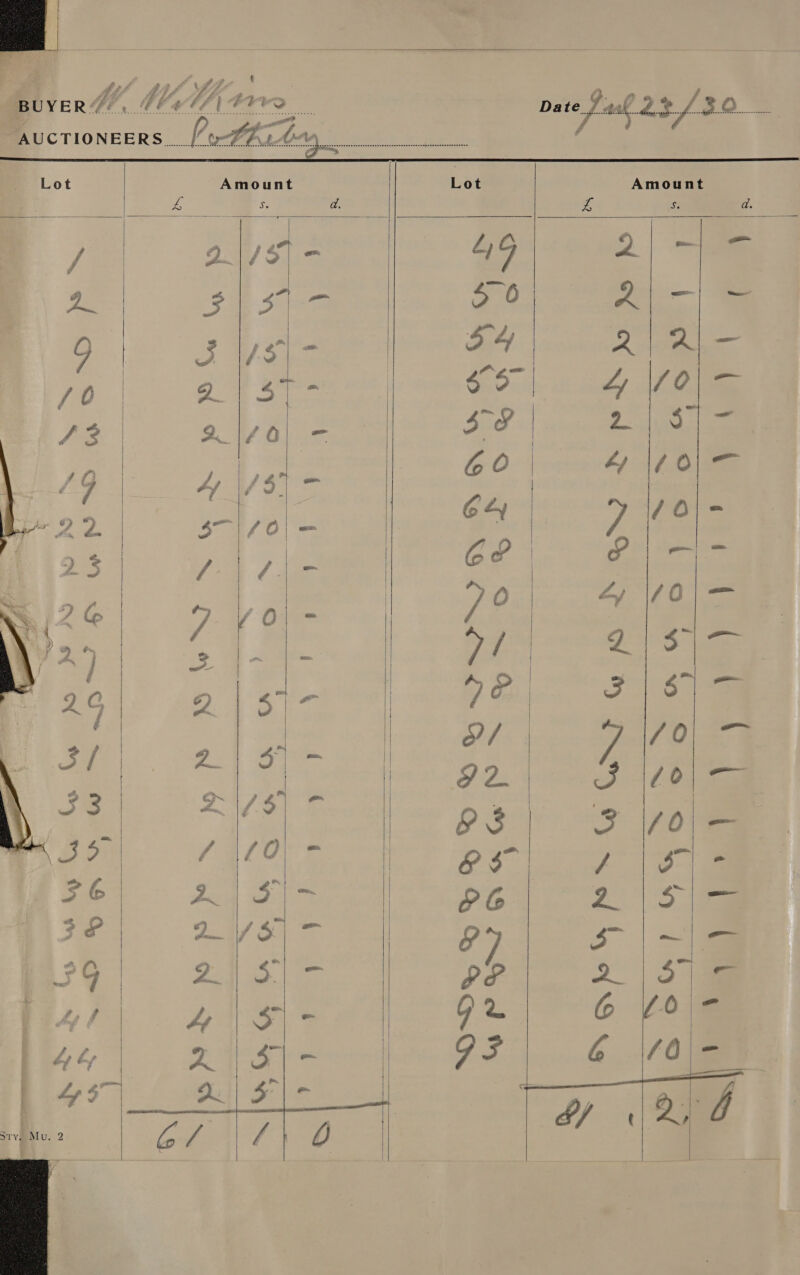 BUYER W. Williams Date Jul 28/30
AUCTIONEERS
Lot Amount Lot Amount
£ s. d. £ s. d.
1 2 15 - 49 2 - -
2 3 5 - 50 2 - -
9 3 15 - 54 2 2 -
10 2 5 - 55 4 10 -
13 2 10 - 58 2 5 -
19 4 15 - 60 4 10 -
22 5 10 - 64 7 10 -
23 1 1 - 68 8 - -
26 7 10 - 70 4 10 -
27 3 - - 71 2 5 -
29 2 5 - 78 3 5 -
31 2 5 - 81 7 10 -
33 2 15 - 82 3 10 -
35 1 10 - 83 3 10 -
36 2 5 - 85 1 5 -
38 2 15 - 86 2 5 -
39 2 5 - 87 5 - -
41 4 5 - 88 2 5 -
44 2 5 - 92 6 10 -
45 2 5 - 93 6 10 -
61 1 0 81 2 0
Sty. Mu. 2